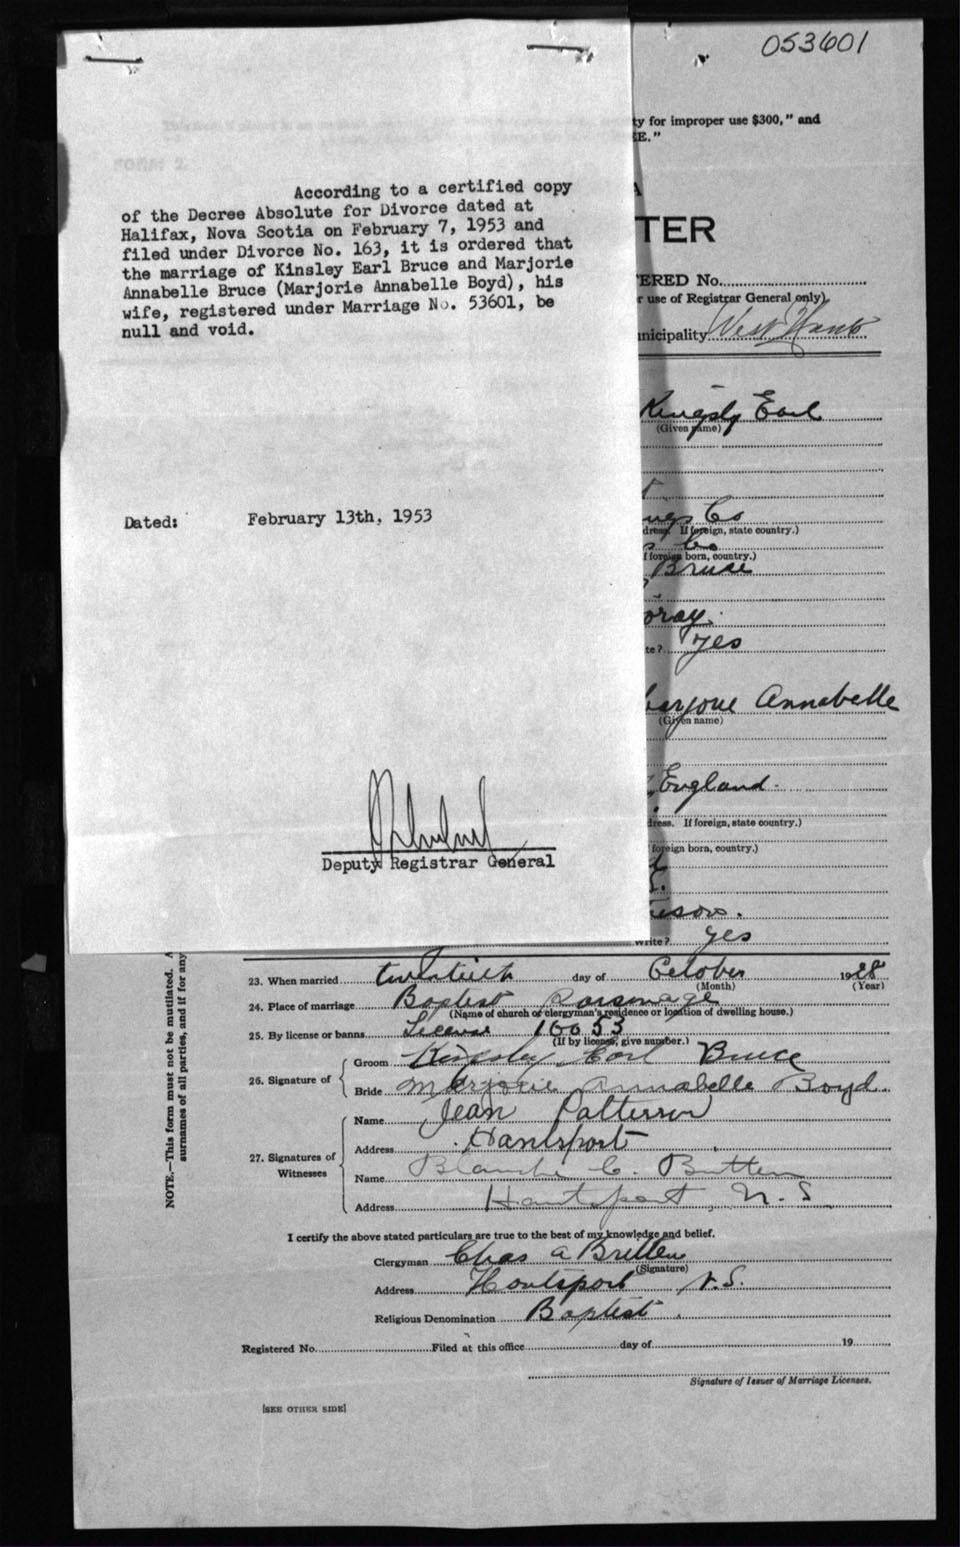 053601
ty for improper use $300," and
EE."
A
TER
ERED No.
r use of Registrar General only)
nicipality West Hants
According to a certified copy
of the Decree Absolute for Divorce dated at
Halifax, Nova Scotia on February 7, 1953 and
filed under Divorce No. 163, it is ordered that
the marriage of Kinsley Earl Bruce and Marjorie
Annabelle Bruce (Marjorie Annabelle Boyd), his
wife, registered under Marriage No. 53601, be
null and void.
Dated: February 13th, 1953
Deputy Registrar General
Kingsly Earl
(Given name)
ngs Co
dress. If foreign, state country.)
s Co
f foreign born, country.)
Bruce
oray.
te? yes
arjorie Annabelle
(Given name)
, England
dress. If foreign, state country.)
foreign born, country.)
write? yes
NOTE.—This form must not be mutilated. A
surnames of all parties, and if for any
23. When married twentieth day of October 1928
(Month) (Year)
24. Place of marriage Baptist Parsonage
(Name of church or clergyman's residence or location of dwelling house.)
25. By license or banns License 16053
(If by license, give number.)
26. Signature of
Groom Kinsley Earl Bruce
Bride Marjorie Annabelle Boyd
27. Signatures of Witnesses
Name Jean Patterson
Address Hantsport
Name Blanche C. Britten
Address Hantsport, N. S
I certify the above stated particulars are true to the best of my knowledge and belief.
Clergyman Chas A Britten
(Signature)
Address Hantsport N.S.
Religious Denomination Baptist.
Registered No. Filed at this office day of 19
Signature of Issuer of Marriage Licenses.
[SEE OTHER SIDE]